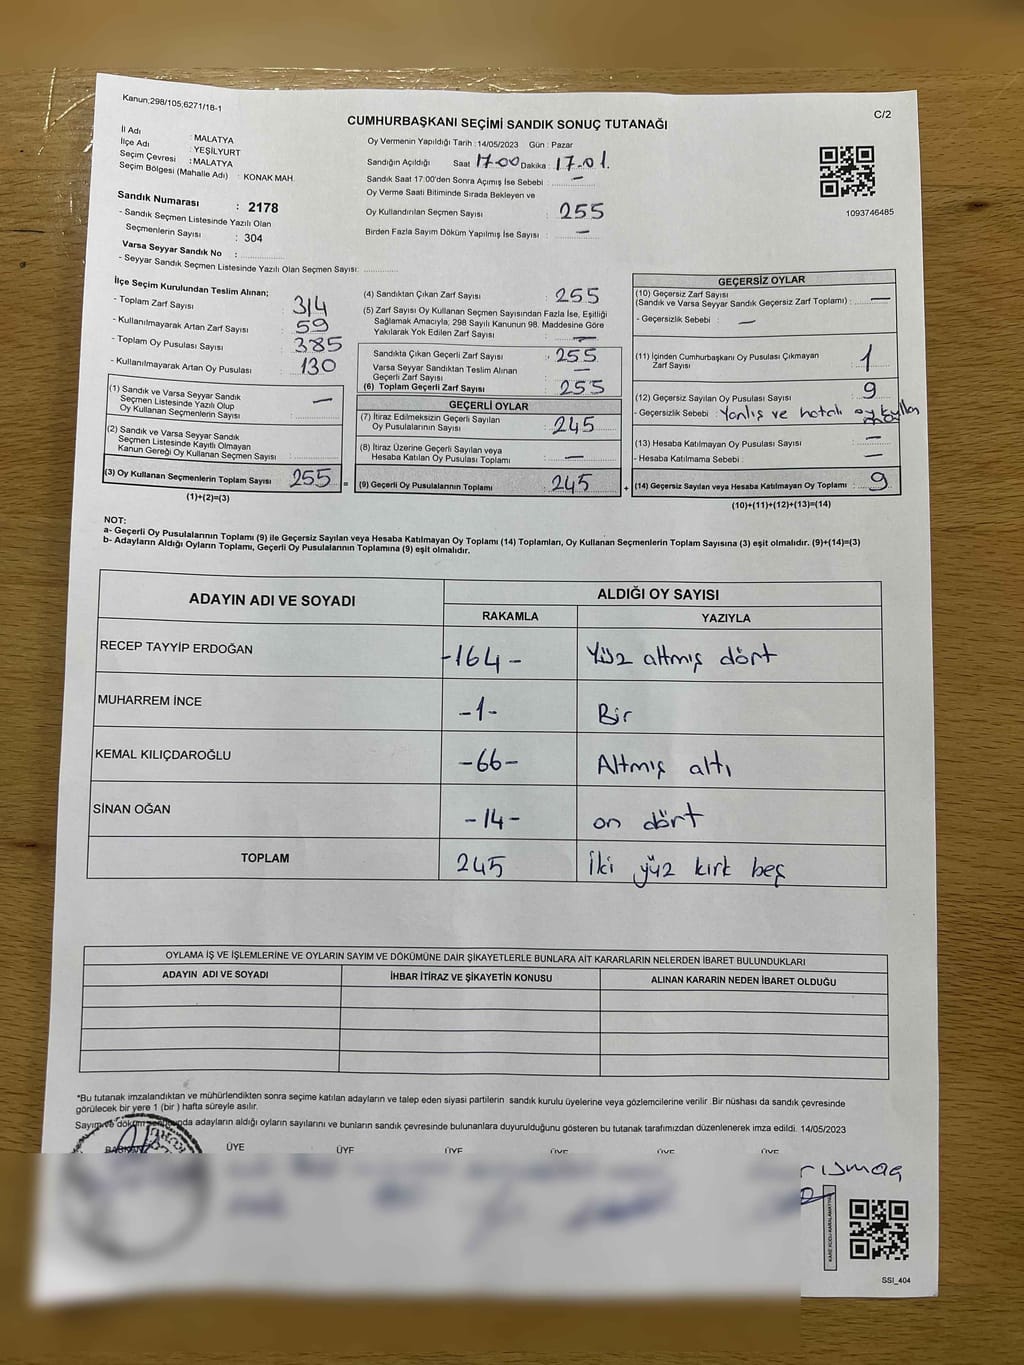 Kanun;298/105,6271/18-1
C/2
CUMHURBAŞKANI SEÇİMİ SANDIK SONUÇ TUTANAĞI
İl Adı : MALATYA
İlçe Adı : YEŞİLYURT
Seçim Çevresi : MALATYA
Seçim Bölgesi (Mahalle Adı) : KONAK MAH.
Oy Vermenin Yapıldığı Tarih : 14/05/2023 Gün : Pazar
Sandığın Açıldığı Saat 17.00 Dakika : 17.01.
Sandık Saat 17:00'den Sonra Açımış İse Sebebi : —
Oy Verme Saati Bitiminde Sırada Bekleyen ve
Oy Kullandırılan Seçmen Sayısı : 255
Birden Fazla Sayım Döküm Yapılmış İse Sayısı : —
1093746485
Sandık Numarası : 2178
- Sandık Seçmen Listesinde Yazılı Olan
Seçmenlerin Sayısı : 304
Varsa Seyyar Sandık No :
- Seyyar Sandık Seçmen Listesinde Yazılı Olan Seçmen Sayısı:
İlçe Seçim Kurulundan Teslim Alınan;
- Toplam Zarf Sayısı : 314
- Kullanılmayarak Artan Zarf Sayısı : 59
- Toplam Oy Pusulası Sayısı : 385
- Kullanılmayarak Artan Oy Pusulası : 130
(1) Sandık ve Varsa Seyyar Sandık
Seçmen Listesinde Yazılı Olup
Oy Kullanan Seçmenlerin Sayısı : —
(2) Sandık ve Varsa Seyyar Sandık
Seçmen Listesinde Kayıtlı Olmayan
Kanun Gereği Oy Kullanan Seçmen Sayısı :
(3) Oy Kullanan Seçmenlerin Toplam Sayısı 255 =
(1)+(2)=(3)
(4) Sandıktan Çıkan Zarf Sayısı : 255
(5) Zarf Sayısı Oy Kullanan Seçmen Sayısından Fazla İse, Eşitliği
Sağlamak Amacıyla, 298 Sayılı Kanunun 98. Maddesine Göre
Yakılarak Yok Edilen Zarf Sayısı : —
Sandıkta Çıkan Geçerli Zarf Sayısı : 255
Varsa Seyyar Sandıktan Teslim Alınan
Geçerli Zarf Sayısı : —
(6) Toplam Geçerli Zarf Sayısı : 255
GEÇERLİ OYLAR
(7) İtiraz Edilmeksizin Geçerli Sayılan
Oy Pusulalarının Sayısı : 245
(8) İtiraz Üzerine Geçerli Sayılan veya
Hesaba Katılan Oy Pusulası Toplamı : —
(9) Geçerli Oy Pusulalarının Toplamı : 245 +
GEÇERSİZ OYLAR
(10) Geçersiz Zarf Sayısı
(Sandık ve Varsa Seyyar Sandık Geçersiz Zarf Toplamı) : —
- Geçersizlik Sebebi : —
(11) İçinden Cumhurbaşkanı Oy Pusulası Çıkmayan
Zarf Sayısı : 1
(12) Geçersiz Sayılan Oy Pusulası Sayısı : 9
- Geçersizlik Sebebi : Yanlış ve hatalı oy
(13) Hesaba Katılmayan Oy Pusulası Sayısı : —
- Hesaba Katılmama Sebebi : —
(14) Geçersiz Sayılan veya Hesaba Katılmayan Oy Toplamı : 9
(10)+(11)+(12)+(13)=(14)
NOT:
a- Geçerli Oy Pusulalarının Toplamı (9) ile Geçersiz Sayılan veya Hesaba Katılmayan Oy Toplamı (14) Toplamları, Oy Kullanan Seçmenlerin Toplam Sayısına (3) eşit olmalıdır. (9)+(14)=(3)
b- Adayların Aldığı Oyların Toplamı, Geçerli Oy Pusulalarının Toplamına (9) eşit olmalıdır.
ADAYIN ADI VE SOYADI
ALDIĞI OY SAYISI
RAKAMLA YAZIYLA
RECEP TAYYİP ERDOĞAN -164- Yüz altmış dört
MUHARREM İNCE -1- Bir
KEMAL KILIÇDAROĞLU -66- Altmış altı
SİNAN OĞAN -14- on dört
TOPLAM 245 İki yüz kırk beş
OYLAMA İŞ VE İŞLEMLERİNE VE OYLARIN SAYIM VE DÖKÜMÜNE DAİR ŞİKAYETLERLE BUNLARA AİT KARARLARIN NELERDEN İBARET BULUNDUKLARI
ADAYIN ADI VE SOYADI İHBAR İTİRAZ VE ŞİKAYETİN KONUSU ALINAN KARARIN NEDEN İBARET OLDUĞU
*Bu tutanak imzalandıktan ve mühürlendikten sonra seçime katılan adayların ve talep eden siyasi partilerin sandık kurulu üyelerine veya gözlemcilerine verilir .Bir nüshası da sandık çevresinde
görülecek bir yere 1 (bir ) hafta süreyle asılır.
Sayım ve döküm sonunda adayların aldığı oyların sayılarını ve bunların sandık çevresinde bulunanlara duyurulduğunu gösteren bu tutanak tarafımızdan düzenlenerek imza edildi. 14/05/2023
BAŞKAN ÜYE ÜYE ÜYE ÜYE ÜYE ÜYE
SSI_404